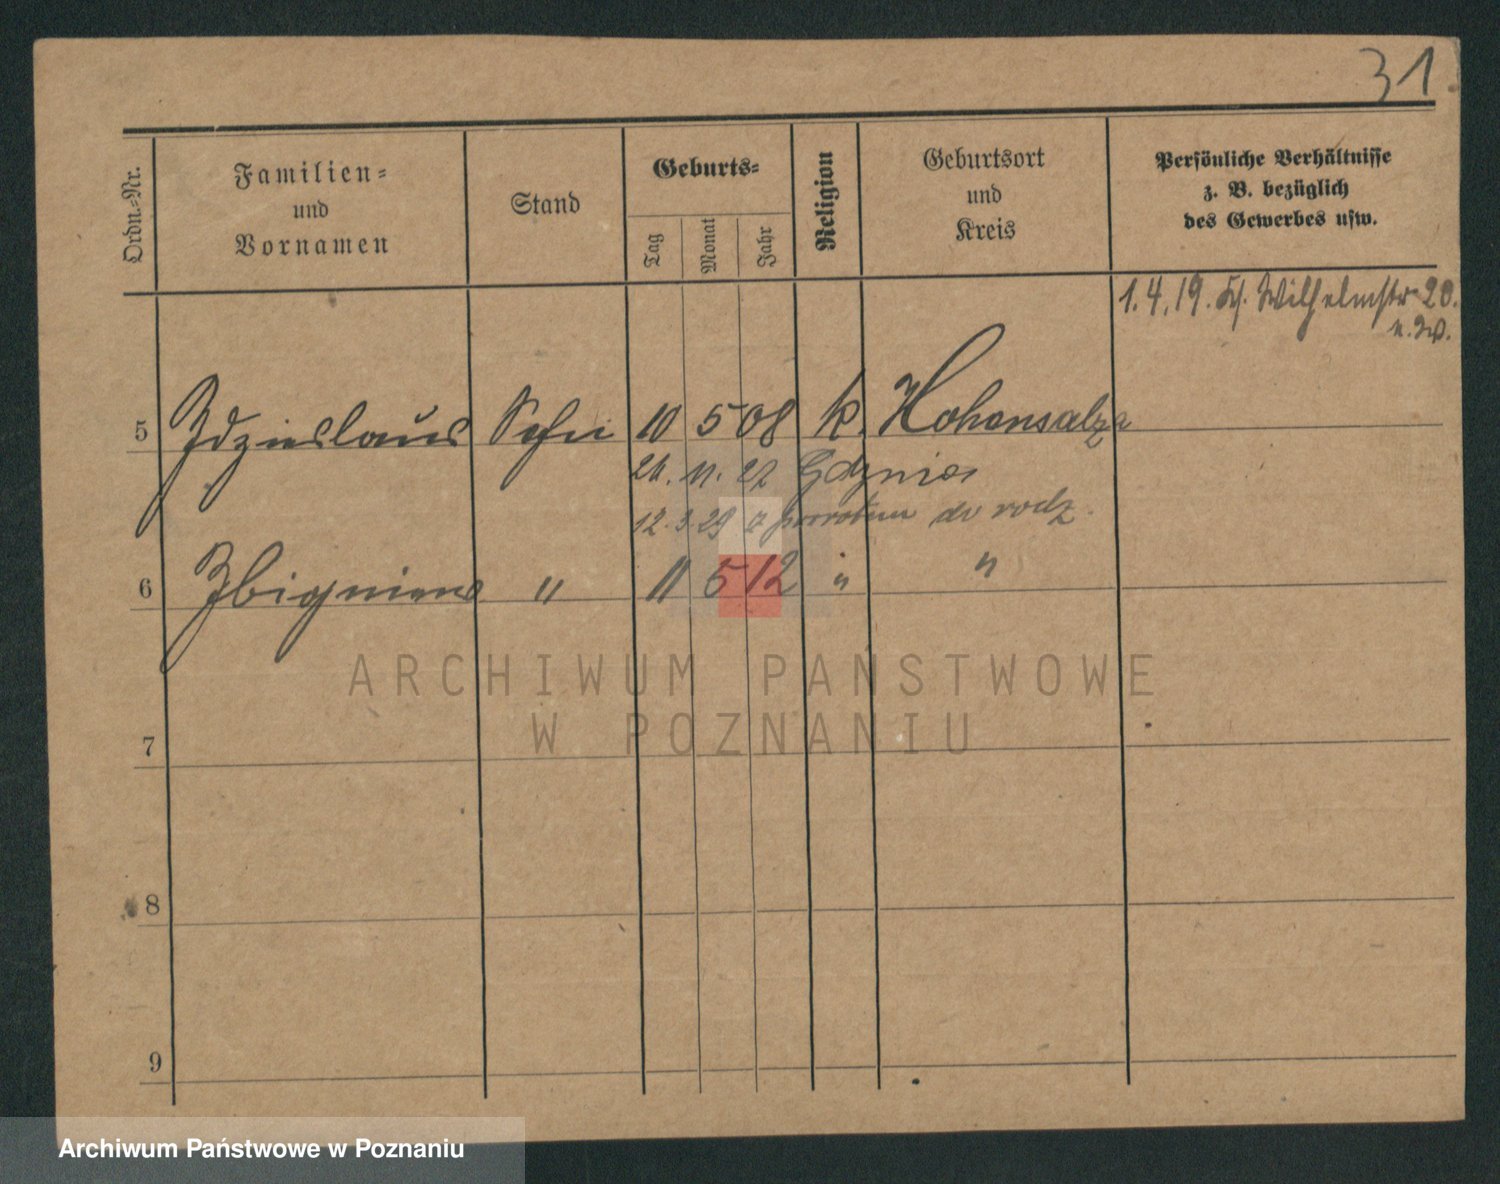 31
Ordn.-Nr.
Familien-
und
Vornamen
Stand
Geburts-
Tag
Monat
Jahr
Religion
Geburtsort
und
Kreis
Persönliche Verhältnisse
z. B. bezüglich
des Gewerbes usw.
1.4.19. Wilhelmstr 20.
5 Zdzieslaus Sohn 10 5 08 k. Hohensalza
11. 27 Gdynia
12. 3 29 z powrotem do rodz.
6 Zbigniew " 11 5 12 " "
ARCHIWUM PAŃSTWOWE
W POZNANIU
7
8
9
Archiwum Państwowe w Poznaniu